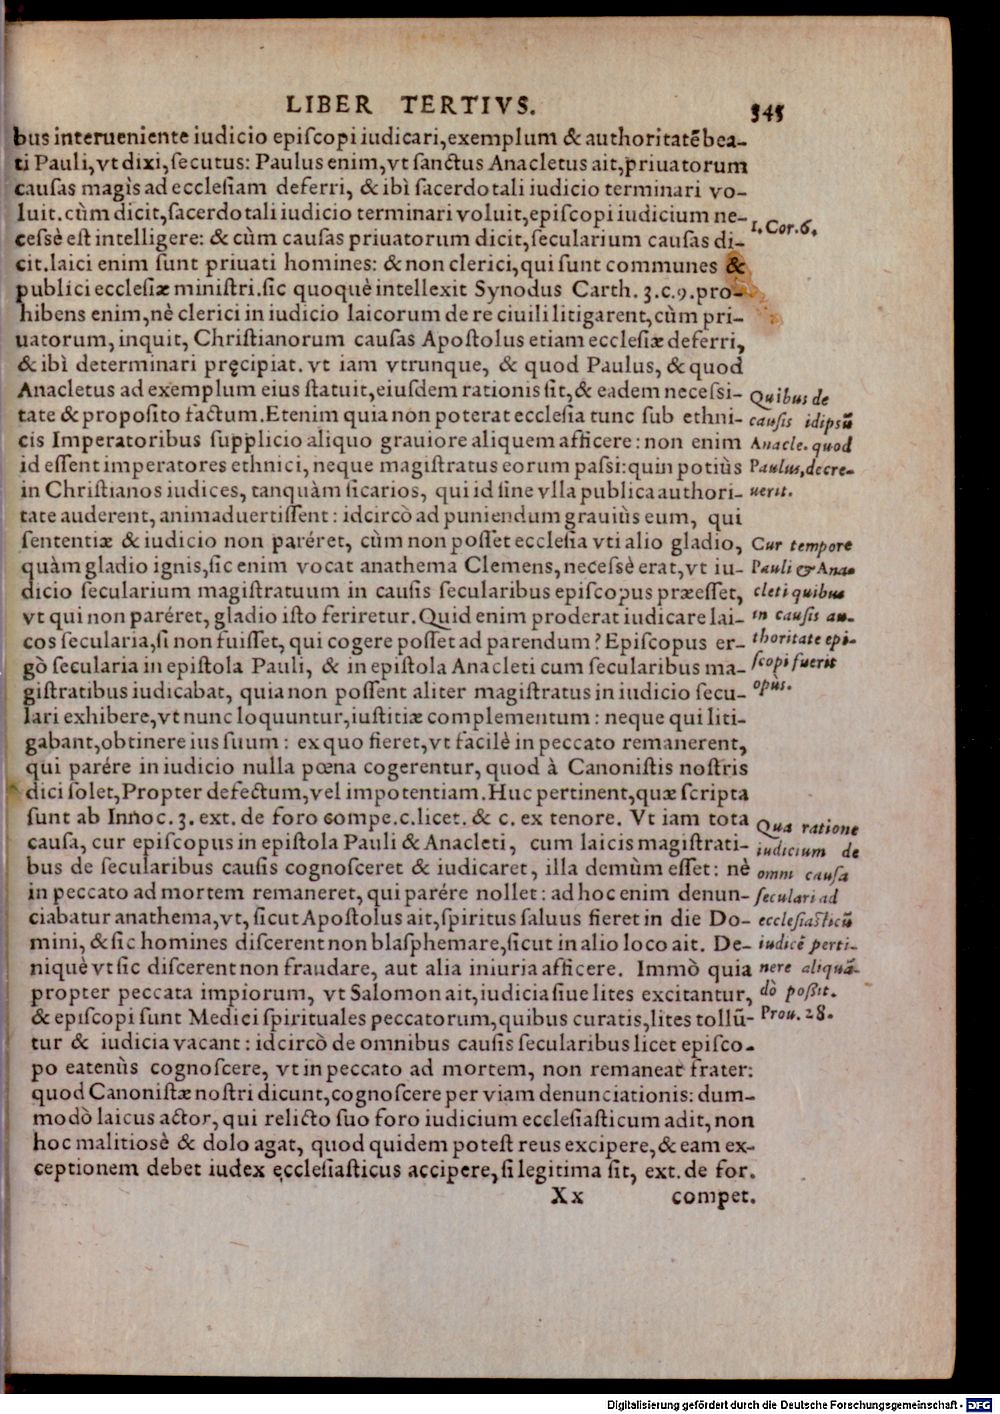 LIBER TERTIVS. 345
bus interueniente iudicio episcopi iudicari, exemplum & authoritatē bea-
ti Pauli, vt dixi, secutus: Paulus enim, vt sanctus Anacletus ait, priuatorum
causas magìs ad ecclesiam deferri, & ibì sacerdotali iudicio terminari vo-
luit. cùm dicit, sacerdotali iudicio terminari voluit, episcopi iudicium ne-
cessè est intelligere: & cùm causas priuatorum dicit, secularium causas di-
cit. laici enim sunt priuati homines: & non clerici, qui sunt communes &
publici ecclesiæ ministri. sic quoquè intellexit Synodus Carth. 3. c. 9. pro-
hibens enim, nè clerici in iudicio laicorum de re ciuili litigarent, cùm pri-
uatorum, inquit, Christianorum causas Apostolus etiam ecclesiæ deferri,
& ibì determinari pręcipiat. vt iam vtrunque, & quod Paulus, & quod
Anacletus ad exemplum eius statuit, eiusdem rationis sit, & eadem necessi-
tate & proposito factum. Etenim quia non poterat ecclesia tunc sub ethni-
cis Imperatoribus supplicio aliquo grauiore aliquem afficere: non enim
id essent imperatores ethnici, neque magistratus eorum passi: quin potiùs
in Christianos iudices, tanquàm sicarios, qui id sine vlla publica authori-
tate auderent, animaduertissent: idcircò ad puniendum grauiùs eum, qui
sententiæ & iudicio non paréret, cùm non posset ecclesia vti alio gladio,
quàm gladio ignis, sic enim vocat anathema Clemens, necessè erat, vt iu-
dicio secularium magistratuum in causis secularibus episcopus præesset,
vt qui non paréret, gladio isto feriretur. Quid enim proderat iudicare lai-
cos secularia, si non fuisset, qui cogere posset ad parendum? Episcopus er-
gò secularia in epistola Pauli, & in epistola Anacleti cum secularibus ma-
gistratibus iudicabat, quia non possent aliter magistratus in iudicio secu-
lari exhibere, vt nunc loquuntur, iustitiæ complementum: neque qui liti-
gabant, obtinere ius suum: ex quo fieret, vt facilè in peccato remanerent,
qui parére in iudicio nulla pœna cogerentur, quod à Canonistis nostris
dici solet, Propter defectum, vel impotentiam. Huc pertinent, quæ scripta
sunt ab Innoc. 3. ext. de foro compe. c. licet. & c. ex tenore. Vt iam tota
causa, cur episcopus in epistola Pauli & Anacleti, cum laicis magistrati-
bus de secularibus causis cognosceret & iudicaret, illa demùm esset: nè
in peccato ad mortem remaneret, qui parére nollet: ad hoc enim denun-
ciabatur anathema, vt, sicut Apostolus ait, spiritus saluus fieret in die Do-
mini, & sic homines discerent non blasphemare, sicut in alio loco ait. De-
niquè vt sic discerent non fraudare, aut alia iniuria afficere. Immò quia
propter peccata impiorum, vt Salomon ait, iudicia siue lites excitantur,
& episcopi sunt Medici spirituales peccatorum, quibus curatis, lites tollū-
tur & iudicia vacant: idcircò de omnibus causis secularibus licet episco-
po eatenùs cognoscere, vt in peccato ad mortem, non remaneat frater:
quod Canonistæ nostri dicunt, cognoscere per viam denunciationis: dum-
modò laicus actor, qui relicto suo foro iudicium ecclesiasticum adit, non
hoc malitiosè & dolo agat, quod quidem potest reus excipere, & eam ex-
ceptionem debet iudex ęcclesiasticus accipere, si legitima sit, ext. de for.
Xx compet.
1. Cor. 6.
Quibus de
causis idipsū
Anacle. quod
Paulus, decre-
uerit.
Cur tempore
Pauli & Ana-
cleti quibus
in causis au-
thoritate epi-
scopi fuerit
opus.
Qua ratione
iudicium de
omni causa
seculari ad
ecclesiasticū
iudicē perti-
nere aliquā-
dò possit.
Prou. 28.
Digitalisierung gefördert durch die Deutsche Forschungsgemeinschaft - DFG